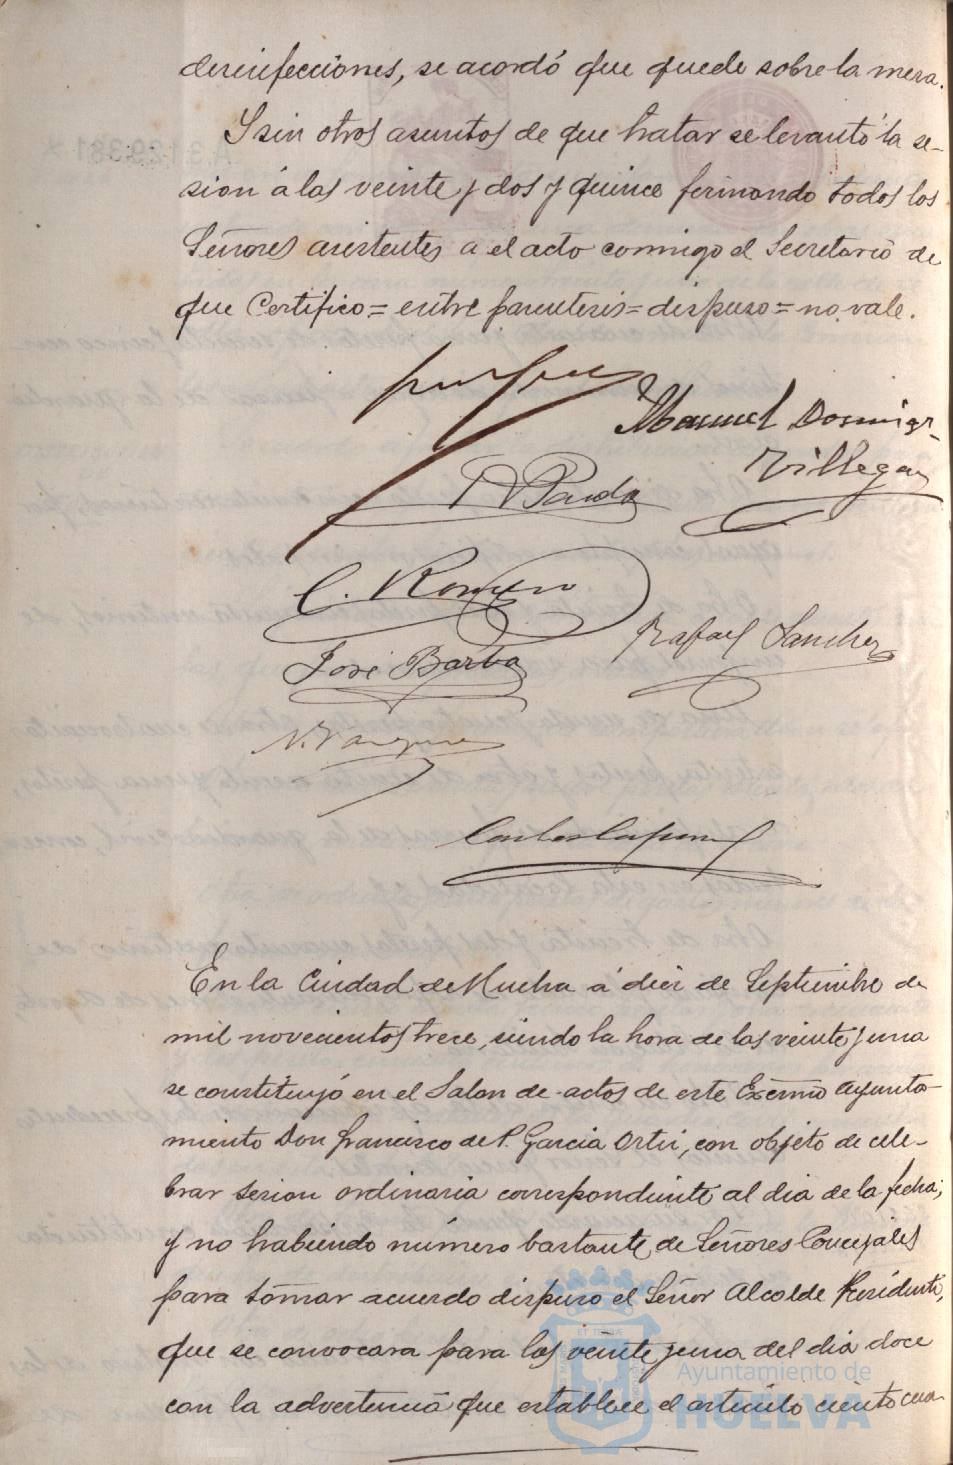 desinfecciones, se acordó que quede sobre la mesa.
Y sin otros asuntos de que tratar se levantó la se-
sion á las veinte y dos y quince firmando todos los
Señores asistentes a el acto conmigo el Secretario de
que Certifico = entre parentesis = dispuso = no vale.
Manuel Doming
Villegas
Pardo
C. Romero
Rafael Sanchez
José Barba
N. Vazquez
Carlos
En la Ciudad de Huelva á diez de Septiembre de
mil novecientos trece, siendo la hora de las veinte y una
se constituyó en el Salon de actos de este Excmo Ayunta-
miento Don Francisco de P. Garcia Ortiz, con objeto de cele-
brar sesion ordinaria correspondiente al dia de la fecha;
y no habiendo número bastante de Señores Concejales
para tomar acuerdo dispuso el Señor Alcalde Presidente,
que se convocara para las veinte y una del dia doce
con la advertencia que establece el articulo ciento cua-
Ayuntamiento de
HUELVA